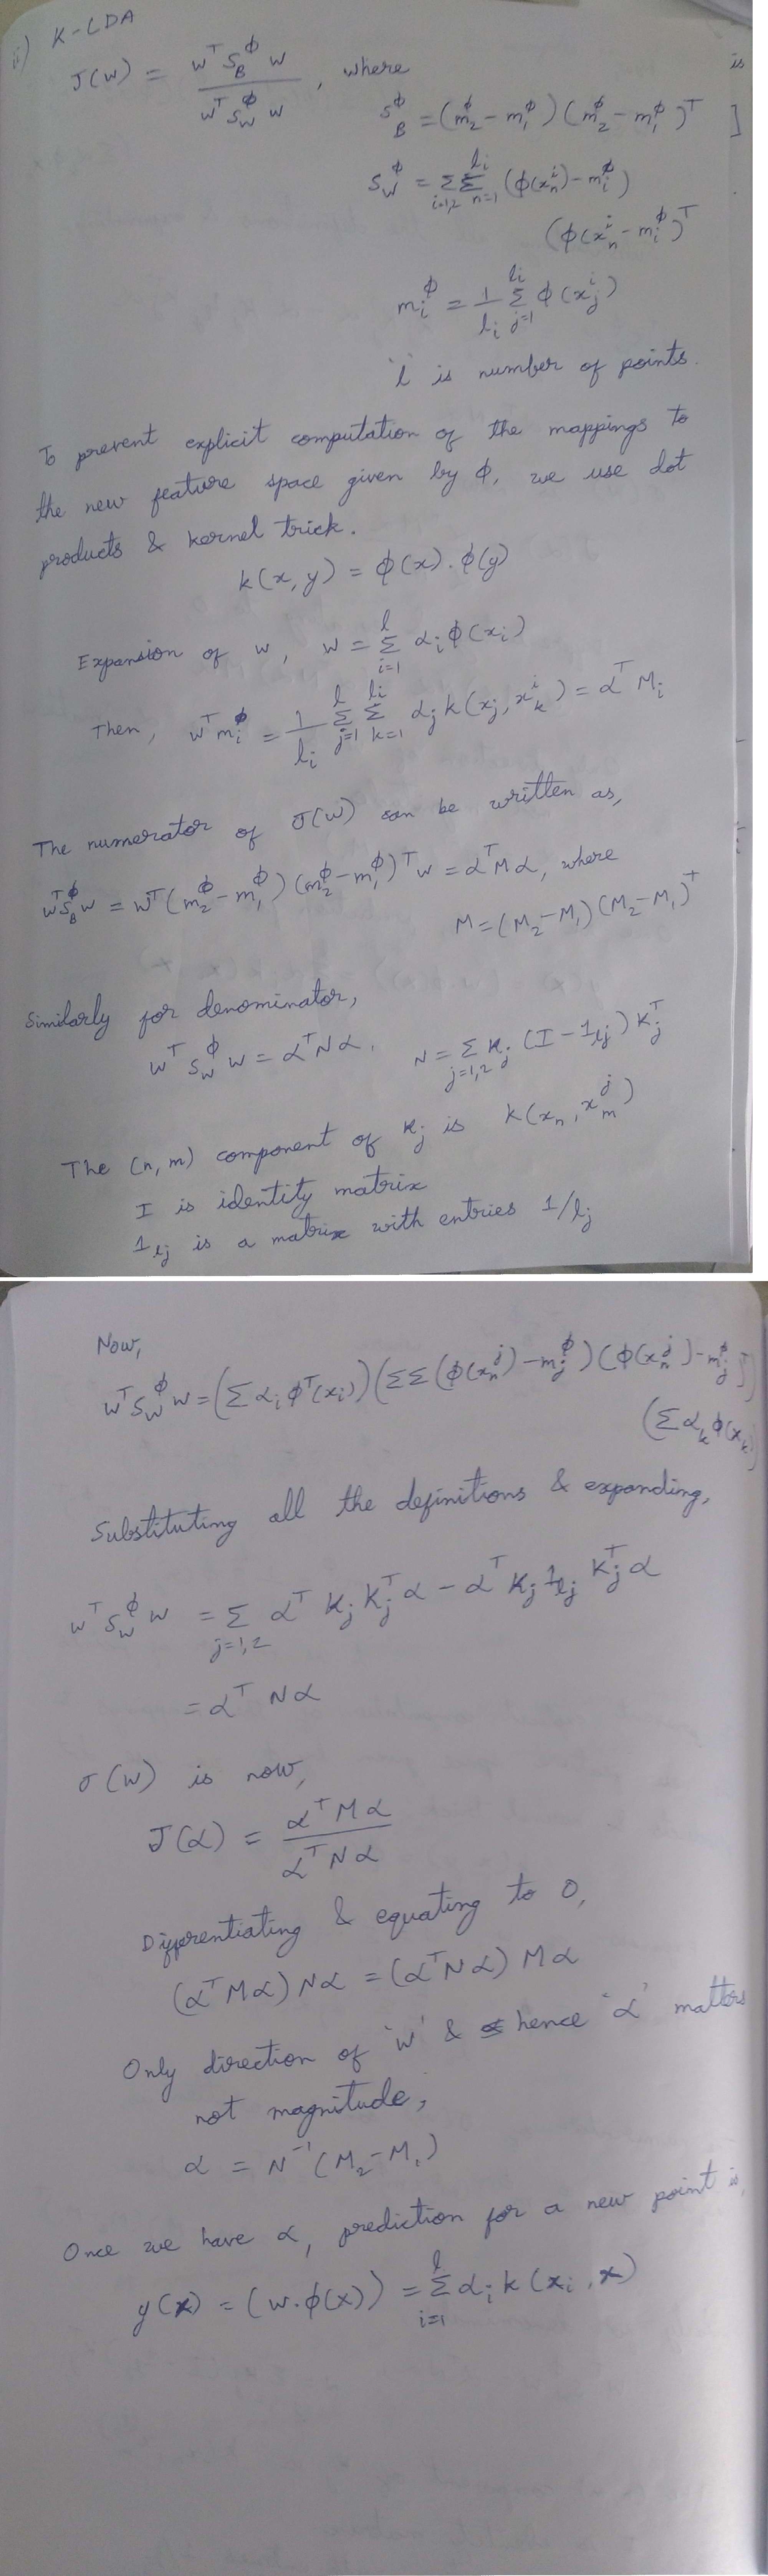 ii) K-LDA
J(w) = w^T S_B^ϕ w / w^T S_W^ϕ w , where
is
S_B^ϕ = (m_2^ϕ - m_1^ϕ)(m_2^ϕ - m_1^ϕ)^T ]
S_W^ϕ = Σ_{i=1,2} Σ_{n=1}^{l_i} (ϕ(x_n^i) - m_i^ϕ)
(ϕ(x_n^i - m_i^ϕ)^T
m_i^ϕ = 1/l_i Σ_{j=1}^{l_i} ϕ(x_j^i)
'l' is number of points.
To prevent explicit computation of the mappings to
the new feature space given by ϕ, we use dot
products & kernel trick.
k(x, y) = ϕ(x).ϕ(y)
Expansion of w, w = Σ_{i=1}^{l} α_i ϕ(x_i)
Then, w^T m_i^ϕ = 1/l_i Σ_{j=1}^{l} Σ_{k=1}^{l_i} α_j k(x_j, x_k^i) = α^T M_i
The numerator of J(w) can be written as,
w^T S_B^ϕ w = w^T (m_2^ϕ - m_1^ϕ)(m_2^ϕ - m_1^ϕ)^T w = α^T M α, where
M = (M_2 - M_1)(M_2 - M_1)^T
Similarly for denominator,
w^T S_W^ϕ w = α^T N α. N = Σ_{j=1,2} K_j (I - 1_{l_j}) K_j^T
The (n, m) component of K_j is k(x_n, x_m^j)
I is identity matrix
1_{l_j} is a matrix with entries 1/l_j
Now,
w^T S_W^ϕ w = (Σ α_i ϕ^T(x_i)) (ΣΣ (ϕ(x_n^j) - m_j^ϕ)(ϕ(x_n^j) - m_j^ϕ)
(Σ α_k ϕ(x_k)
Substituting all the definitions & expanding,
w^T S_W^ϕ w = Σ_{j=1,2} α^T K_j K_j^T α - α^T K_j 1_{l_j} K_j^T α
= α^T N α
J(w) is now,
J(α) = α^T M α / α^T N α
Differentiating & equating to 0,
(α^T M α) N α = (α^T N α) M α
Only direction of 'w' & hence 'α' matters
not magnitude,
α = N^{-1} (M_2 - M_1)
Once we have α, prediction for a new point is,
y(x) = (w.ϕ(x)) = Σ_{i=1}^{l} α_i k(x_i, x)